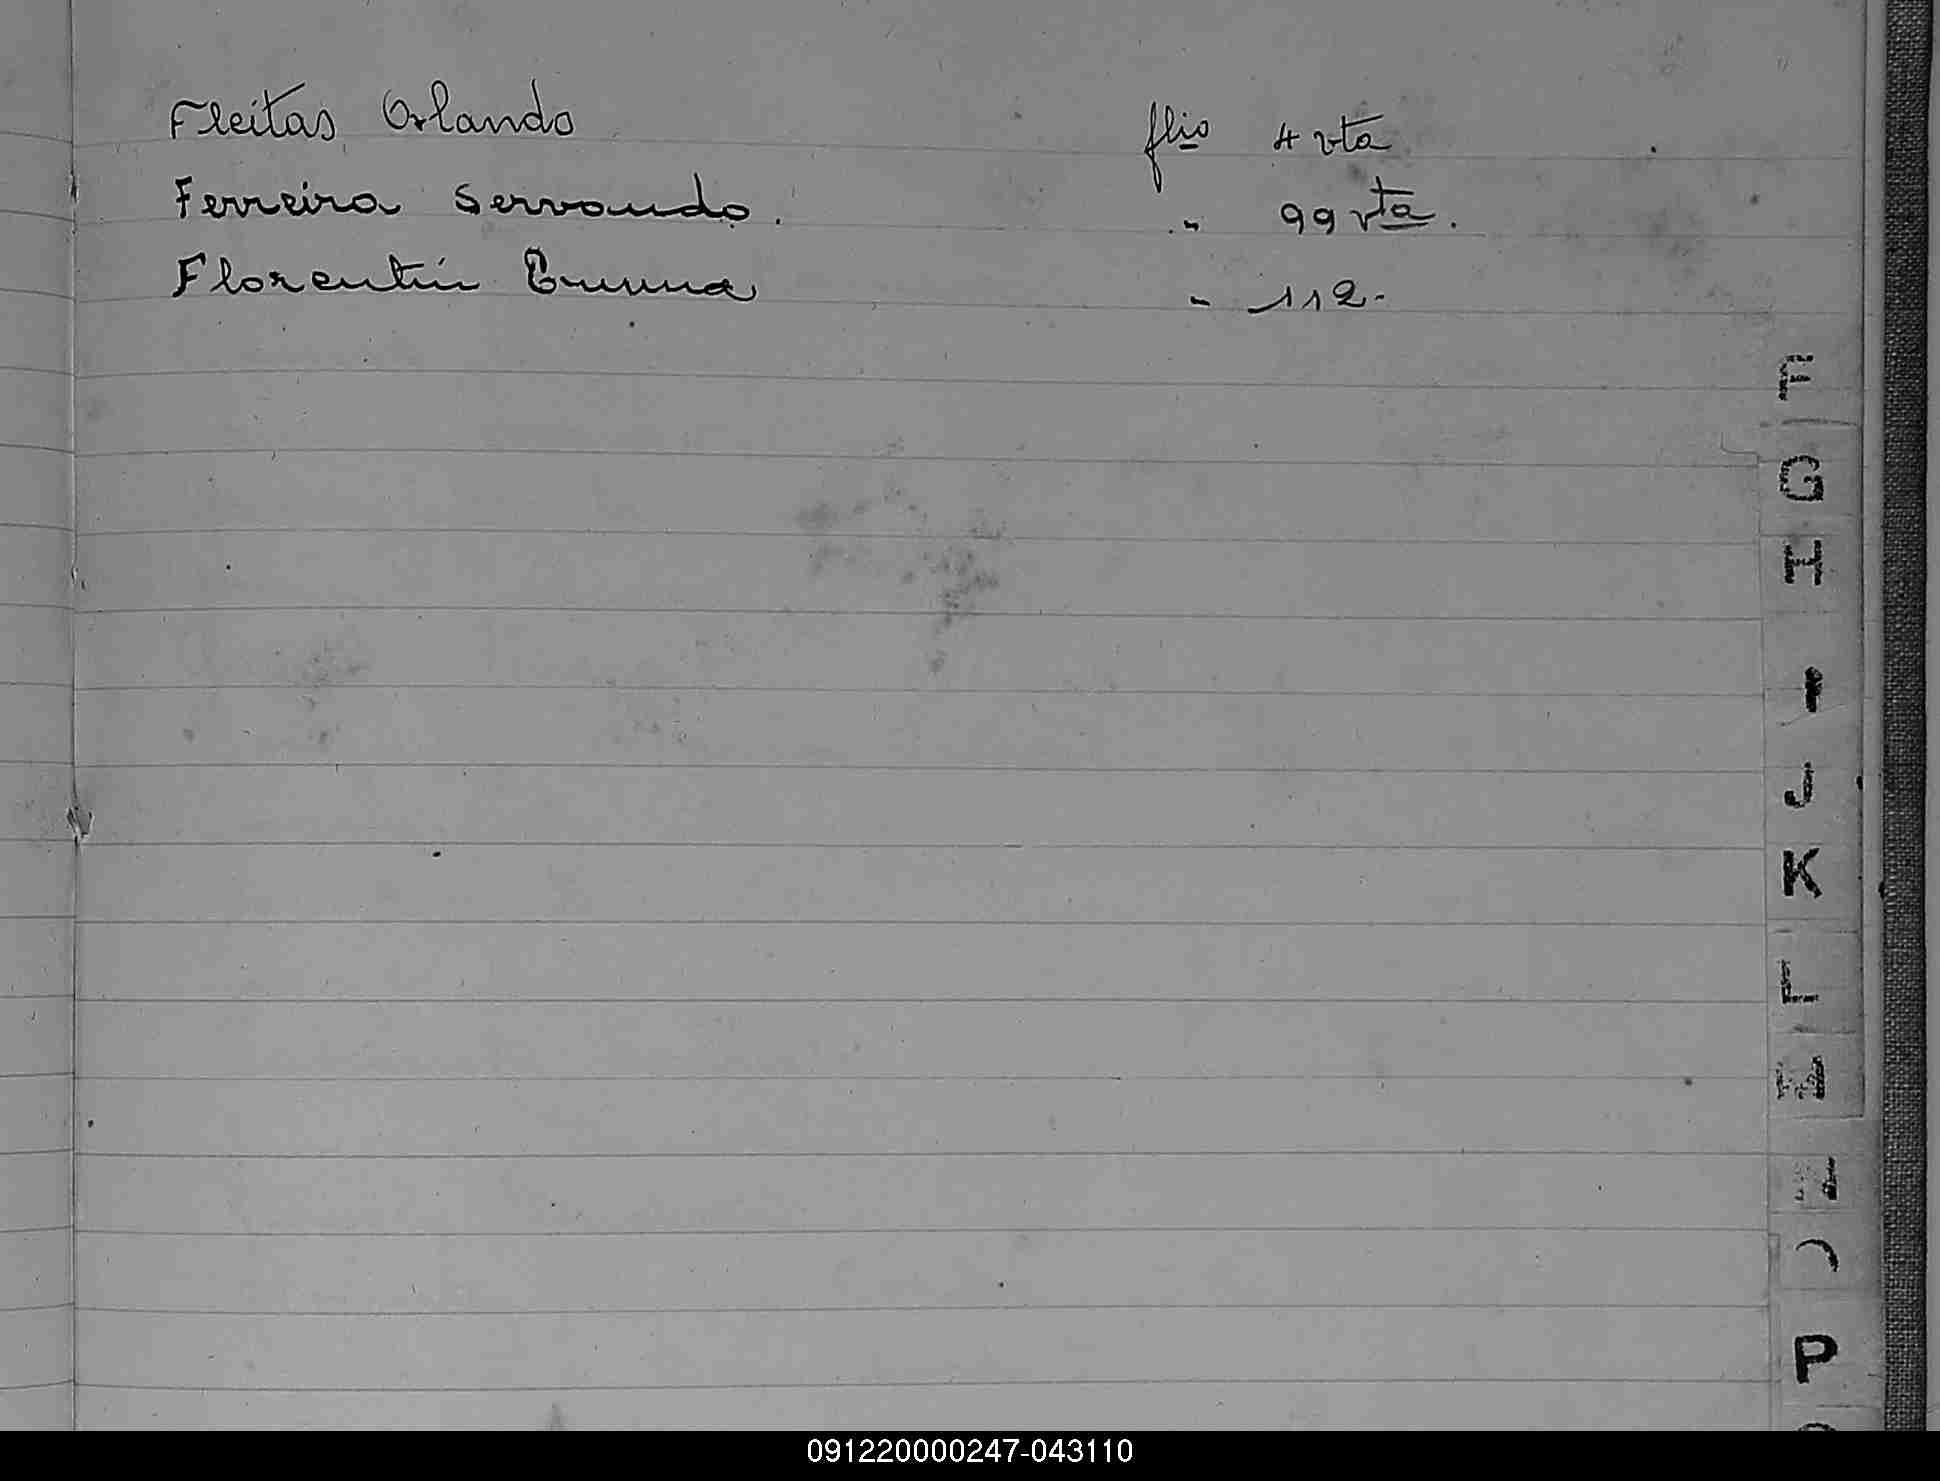 Fleitas Orlando flio 4 vta
Ferreira Servando. " 99 vta.
Florentín Emma " 112.
F
G
H
I
J
K
L
P
091220000247-043110